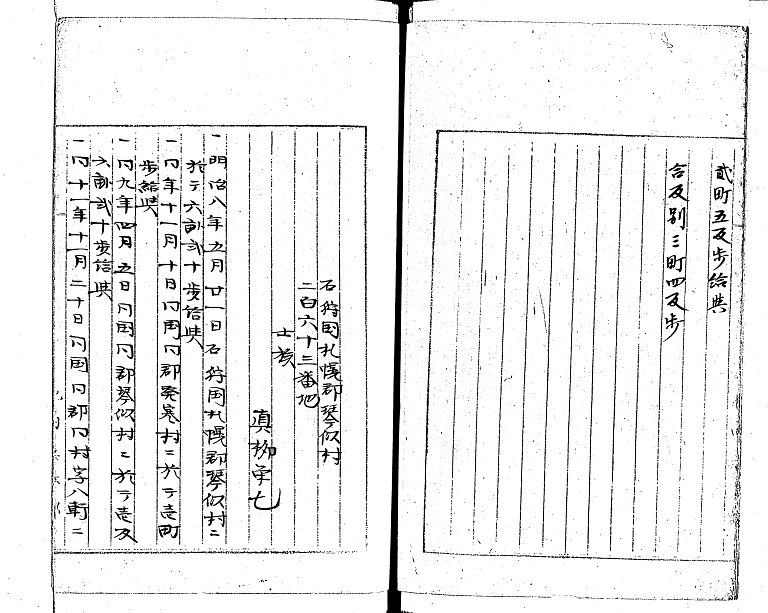 貳町五反歩給與
合反別三町四反歩
石狩国札幌郡琴似村
二百六十三番地
士族
真柳
一明治八年五月廿一日石狩国札幌郡琴似村ニ
於テ六畝弐十歩給與
一同年十一月十日同国同郡発寒村ニ於テ壱町
歩給與
一同九年四月五日同国同郡琴似村ニ於テ壱反
六畝弐十歩給與
一同十一年十一月二十日同国同郡同村字八軒ニ